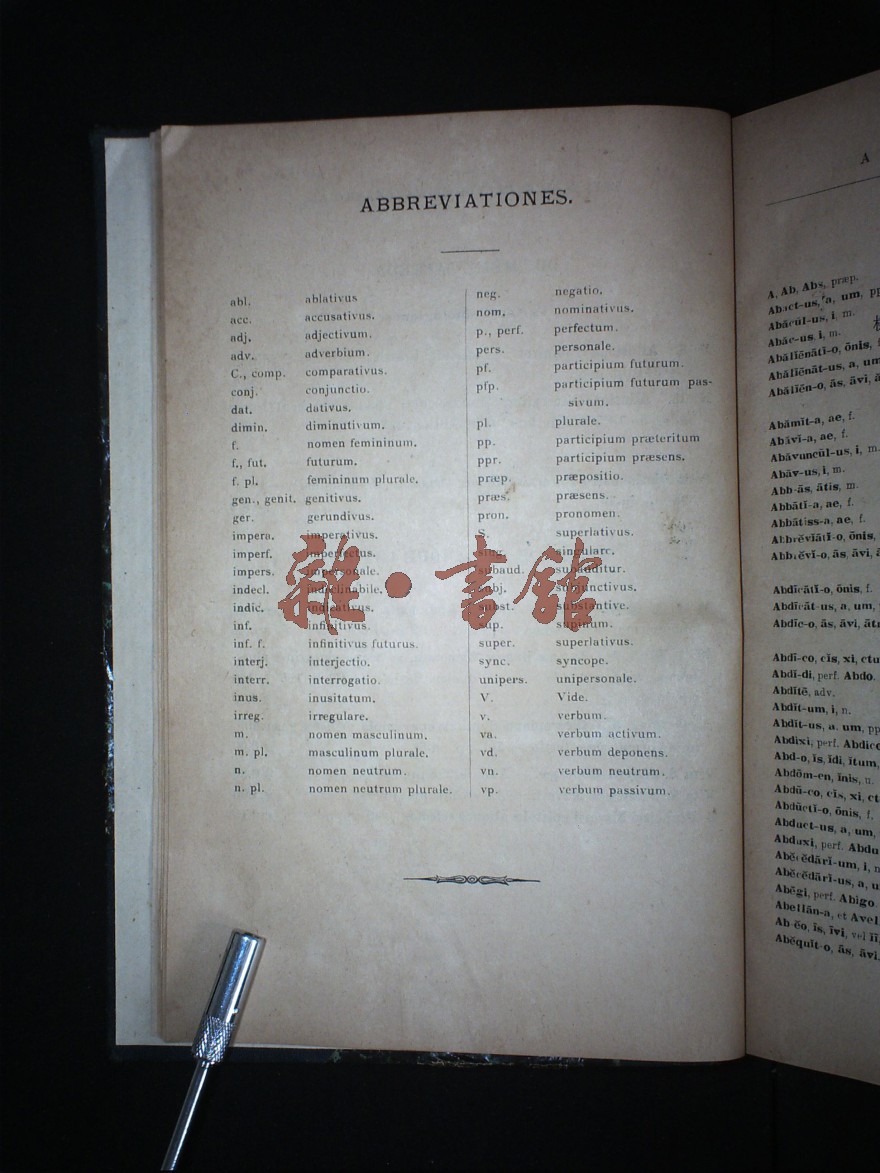 ABBREVIATIONES.
abl. ablativus
acc. accusativus.
adj. adjectivum.
adv. adverbium.
C., comp. comparativus.
conj. conjunctio.
dat. dativus.
dimin. diminutivum.
f. nomen femininum.
f., fut. futurum.
f. pl. femininum plurale.
gen., genit. genitivus.
ger. gerundivus.
impera. imperativus.
imperf. imperfectus.
impers. impersonale.
indecl. indeclinabile.
indic. indicativus.
inf. infinitivus.
inf. f. infinitivus futurus.
interj. interjectio.
interr. interrogatio.
inus. inusitatum.
irreg. irregulare.
m. nomen masculinum.
m. pl. masculinum plurale.
n. nomen neutrum.
n. pl. nomen neutrum plurale.
neg. negatio.
nom. nominativus.
p., perf. perfectum.
pers. personale.
pf. participium futurum.
pfp. participium futurum pas-
sivum.
pl. plurale.
pp. participium præteritum
ppr. participium præsens.
præp. præpositio.
præs. præsens.
pron. pronomen.
S. superlativus.
sing. singulare.
subaud. subauditur.
subj. subjunctivus.
subst. substantive.
sup. supinum.
super. superlativus.
sync. syncope.
unipers. unipersonale.
V. Vide.
v. verbum.
va. verbum activum.
vd. verbum deponens.
vn. verbum neutrum.
vp. verbum passivum.
雜·書館
A
A, Ab, Abs, præp.
Abact-us, a, um, pp
Abăcŭl-us, i, m.
Abăc-us, i, m.
Abălĭēnātĭ-o, ōnis, f
Abălĭēnāt-us, a, um
Abălĭēn-o, ās, āvi, ā
Abămĭt-a, ae, f.
Abăvĭ-a, ae, f.
Abăvuncŭl-us, i, m.
Abăv-us, i, m.
Abb-ās, ātis, m.
Abbātĭ-a, ae, f.
Abbātiss-a, ae, f.
Abbrĕvĭātĭ-o, ōnis,
Abbrĕvĭ-o, ās, āvi, ā
Abdĭcātĭ-o, ōnis, f.
Abdĭcāt-us, a, um,
Abdĭc-o, ās, āvi, āt
Abdī-co, cis, xi, ctu
Abdĭ-di, perf. Abdo.
Abdĭtē, adv.
Abdĭt-um, i, n.
Abdĭt-us, a, um, pp
Abdixi, perf. Abdico
Abd-o, ĭs, ĭdi, ĭtum,
Abdōm-en, ĭnis, n.
Abdū-co, cĭs, xi, ct
Abdŭctĭ-o, ōnis, f.
Abduct-us, a, um,
Abduxi, perf. Abdu
Abĕcĕdārĭ-um, i, n
Abĕcĕdārĭ-us, a, u
Abēgi, perf. Abigo
Abellān-a, et Avel
Ab-ĕo, īs, īvi, vel ĭi,
Abĕquĭt-o, ās, āvi,